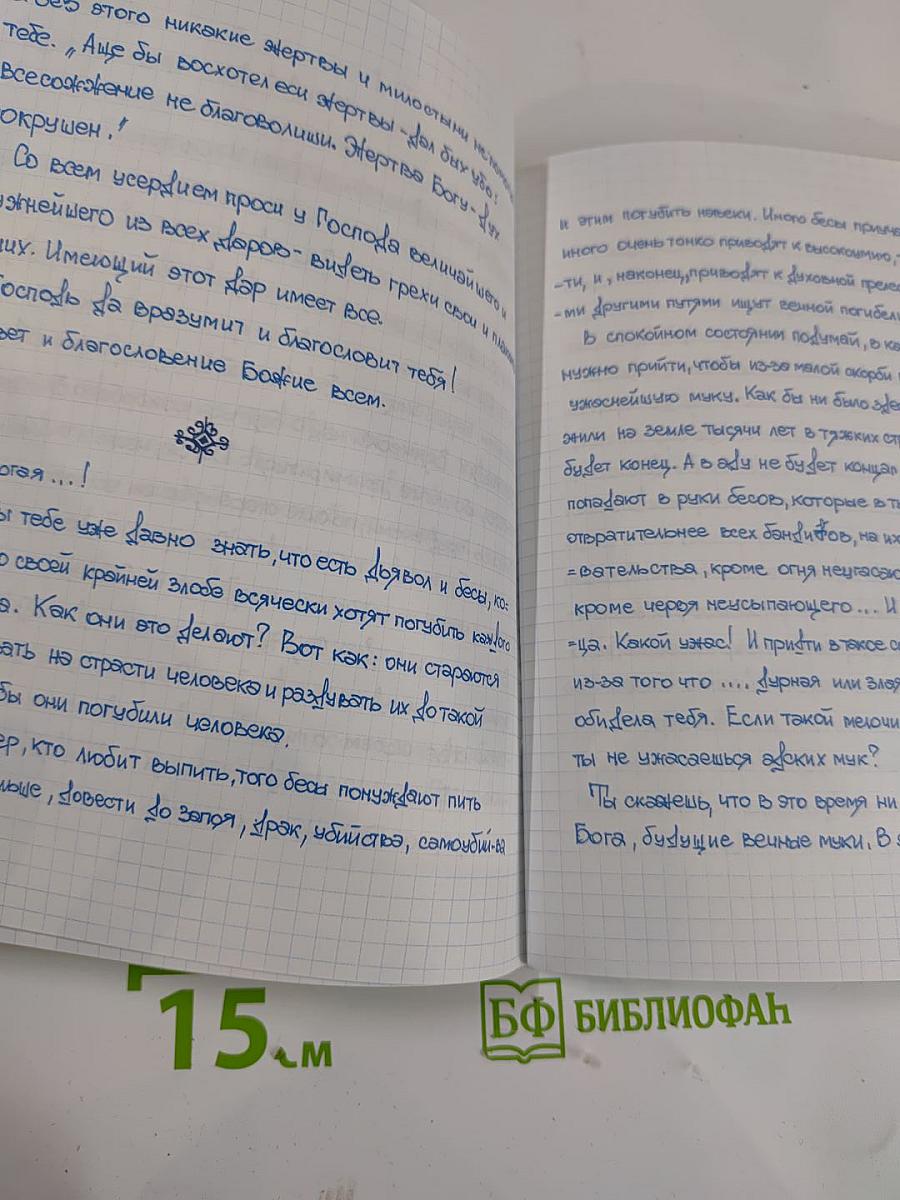 этого никакие жертвы и милостыни не
тебе. „Аще бы восхотел еси жертвы - дал бых убо:
всесожжение не благоволиши. Жертва Богу - дух
окрушен.“
Со всем усердием проси у Господа величайшего и
ужнейшего из всех даров - видеть грехи свои и
них. Имеющий этот дар имеет все.
Господь да вразумит и благословит тебя!
вет и благословение Божие всем.
огая...!
ы тебе уже давно знать, что есть дьявол и бесы, ко-
о своей крайней злобе всячески хотят погубить каждого
а. Как они это делают? Вот как: они стараются
вать на страсти человека и раздувать их до такой
бы они погубили человека.
ер, кто любит выпить, того бесы понуждают пить
льше, довести до запоя, драк, убийства, самоубий-ва
и этим погубить навеки. Иного бесы приуча
иного очень тонко приводят к высокоумию,
-ти, и, наконец, приводят к духовной преле
-ми другими путями ищут вечной погибели
В спокойном состоянии подумай, в ка
нужно прийти, чтобы из-за малой скорби
ужаснейшую муку. Как бы ни было зде
жили на земле тысячи лет в тяжких ст
будет конец. А в аду не будет конца
попадают в руки бесов, которые в ты
отвратительнее всех бандитов, на их
=вательства, кроме огня неугасаю
кроме червя неусыпающего... И
=ца. Какой ужас! И придти в такое со
из-за того что .... дурная или злая
обидела тебя. Если такой мелочи
ты не ужасаешься адских мук?
Ты скажешь, что в это время ни
Бога, будущие вечные муки. В э
15 см
БФ БИБЛИОФАН